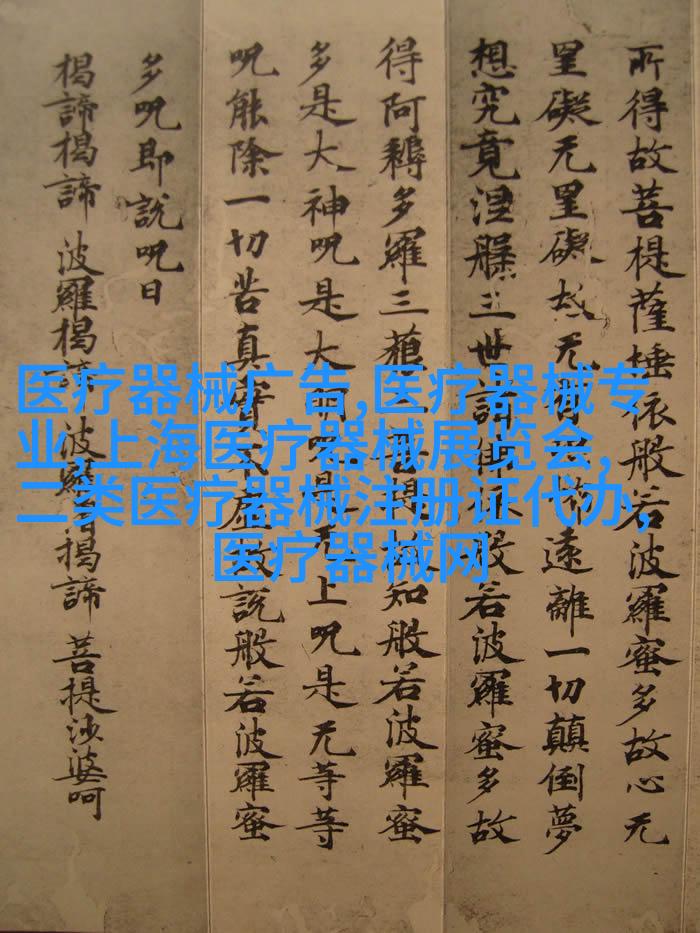 所得故菩提薩埵依般若波羅蜜多故心无
罣礙无罣礙故无有遠離一切顛倒夢
想究竟涅槃三世諸佛依般若波羅蜜多故
得阿耨多羅三藐菩提故知般若波羅蜜
多是大神呪是大明呪是无上呪是无等等
呪能除一切苦真實不虛故說般若波羅蜜
多呪即說呪曰
揭諦揭諦 波羅揭諦 波羅僧揭諦 菩提沙婆呵
医疗器械广告,医疗器械专
业,上海医疗器械展览会,
二类医疗器械注册证代办,
医疗器械网